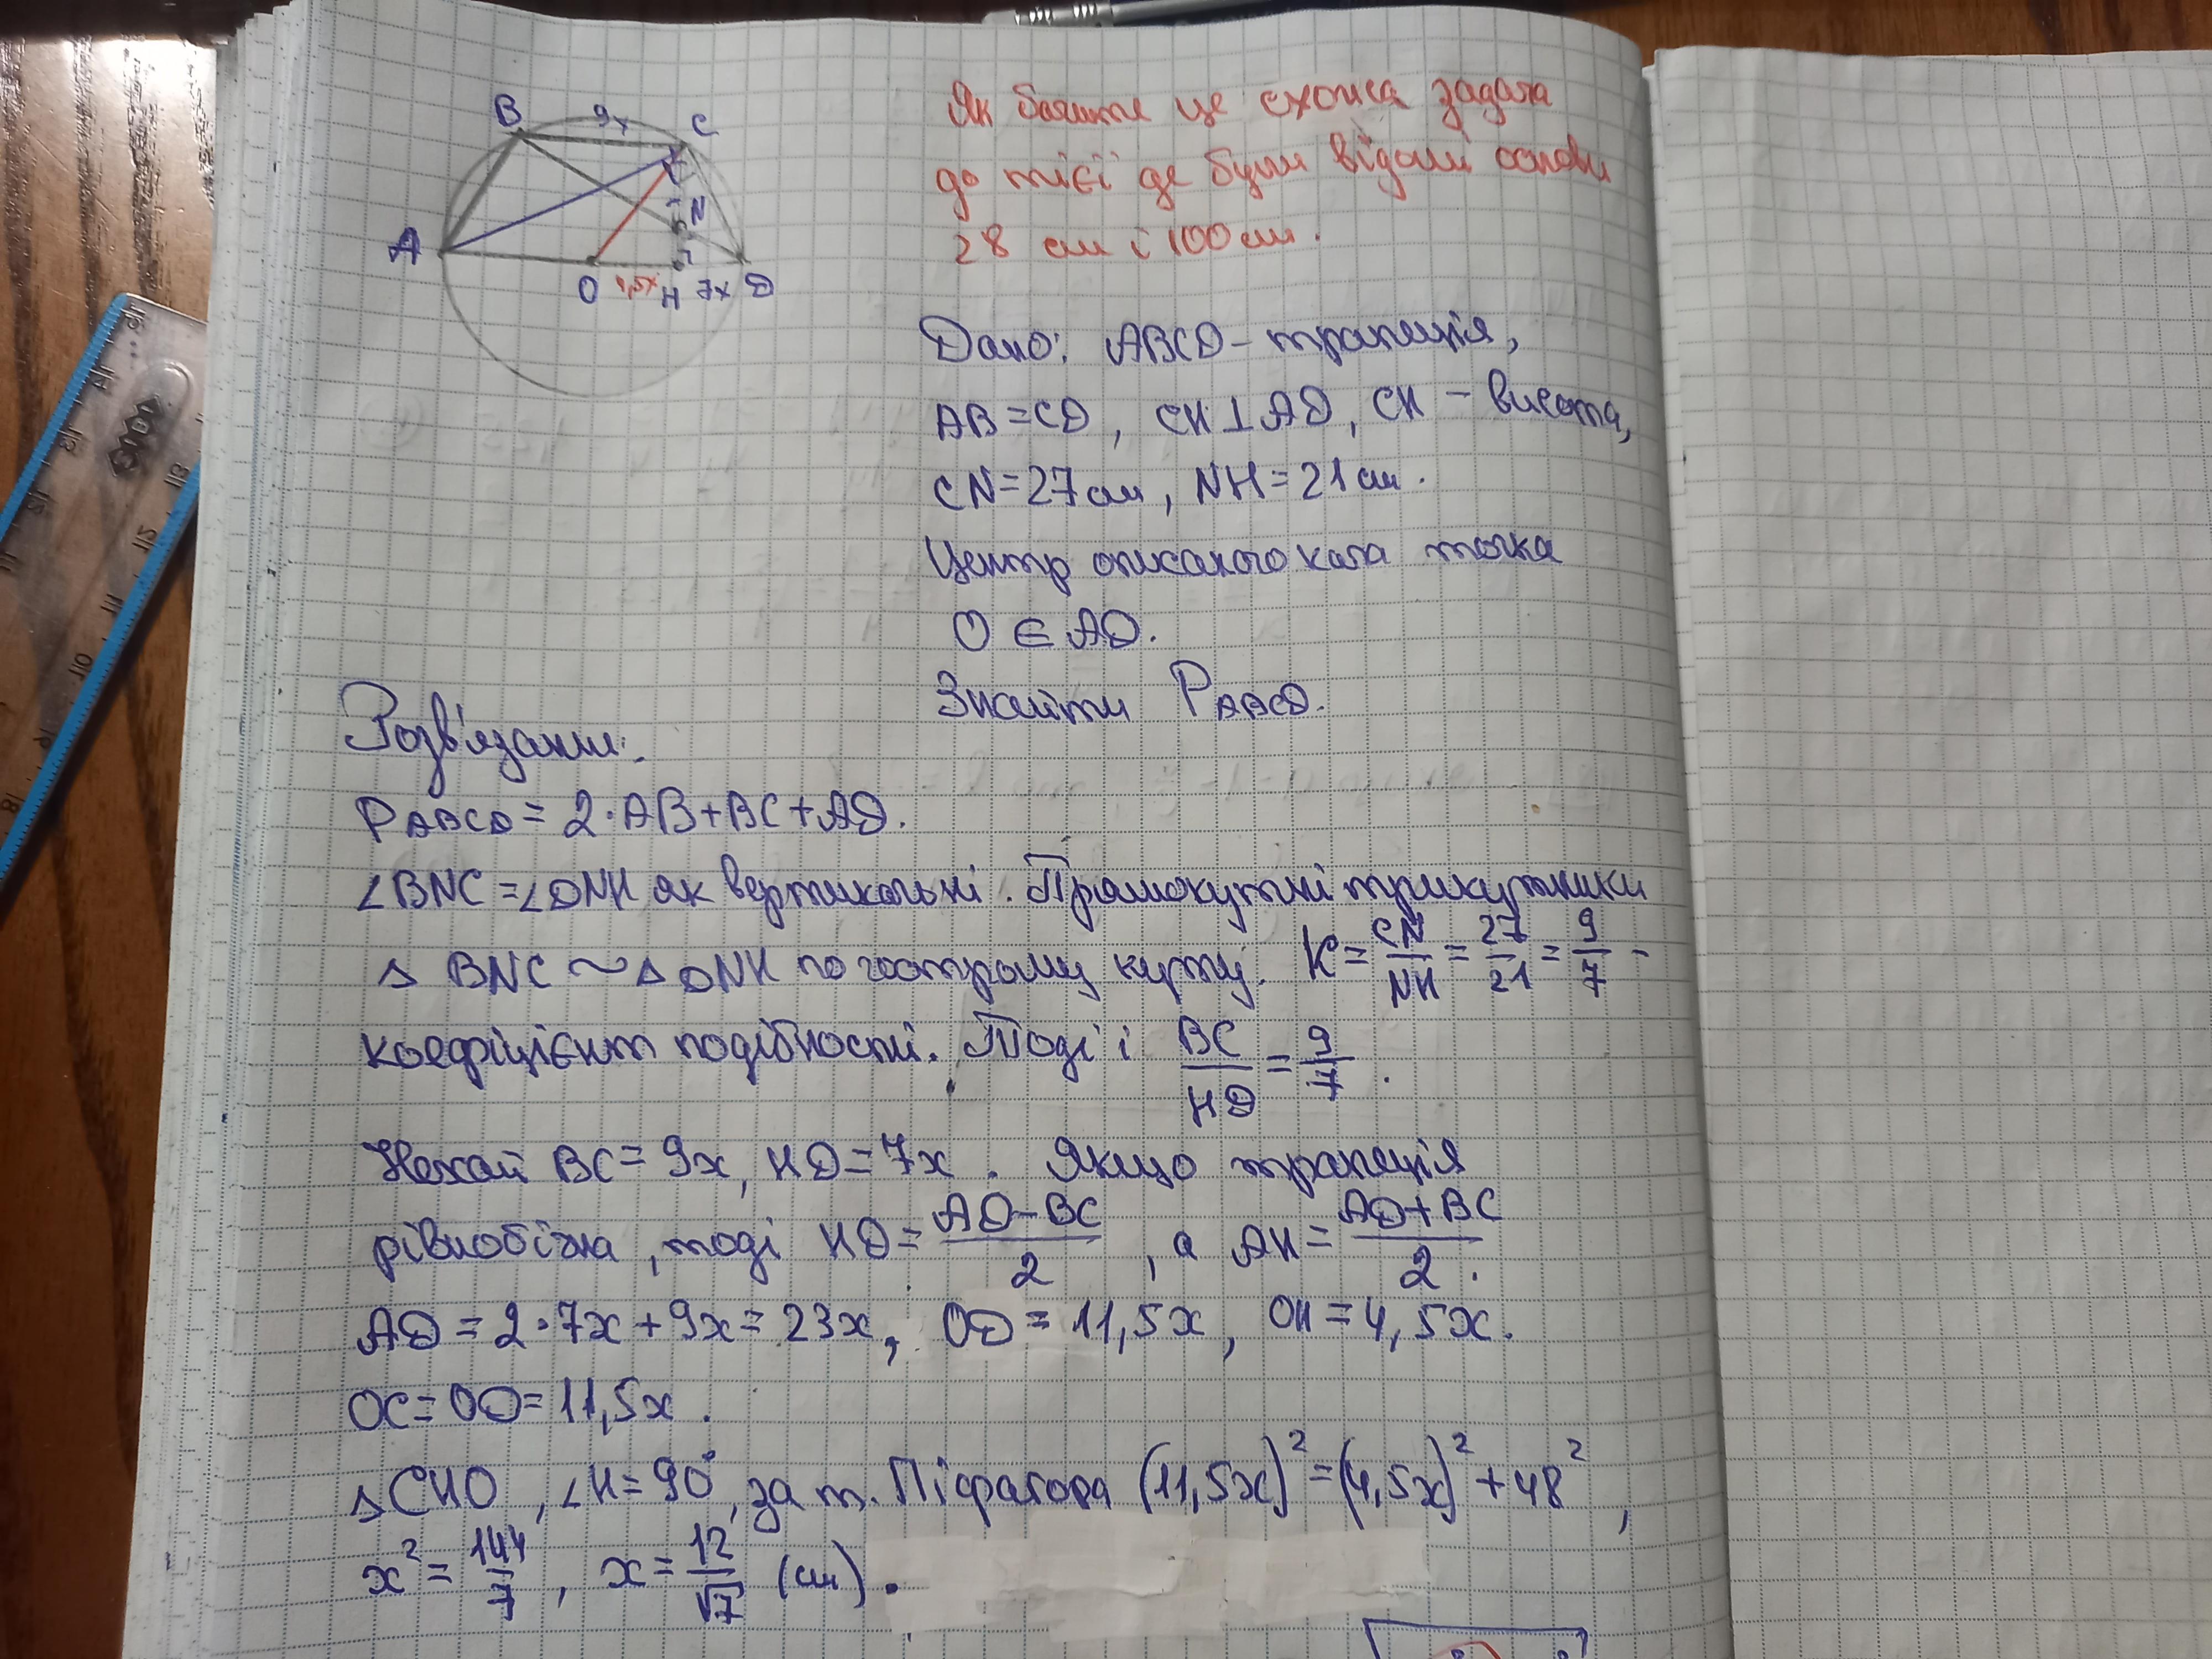 B 9x C
Як бачите це схожа задача
до тієї де були відомі основи
28 см і 100 см.
N
A
O 4,5x H 7x D
Дано: ABCD - трапеція,
AB = CD, CH ⊥ AD, CH - висота,
CN = 27 см, NH = 21 см.
Центр описаного кола точка
O ∈ AD.
Знайти P ABCD.
Розв'язання:
P ABCD = 2·AB + BC + AD.
∠BNC = ∠DNH як вертикальні. Прямокутні трикутники
△ BNC ~ △ DNH по гострому куту. K = CN/NH = 27/21 = 9/7 -
коефіцієнт подібності. Тоді і BC/HD = 9/7.
Нехай BC = 9x, HD = 7x. Якщо трапеція
рівнобічна, тоді HD = (AD-BC)/2, а AH = (AD+BC)/2.
AD = 2·7x + 9x = 23x, OD = 11,5x, OH = 4,5x.
OC = OD = 11,5x.
△CHO, ∠H = 90°, за т. Піфагора (11,5x)² = (4,5x)² + 48²,
x² = 144/7, x = 12/√7 (см).